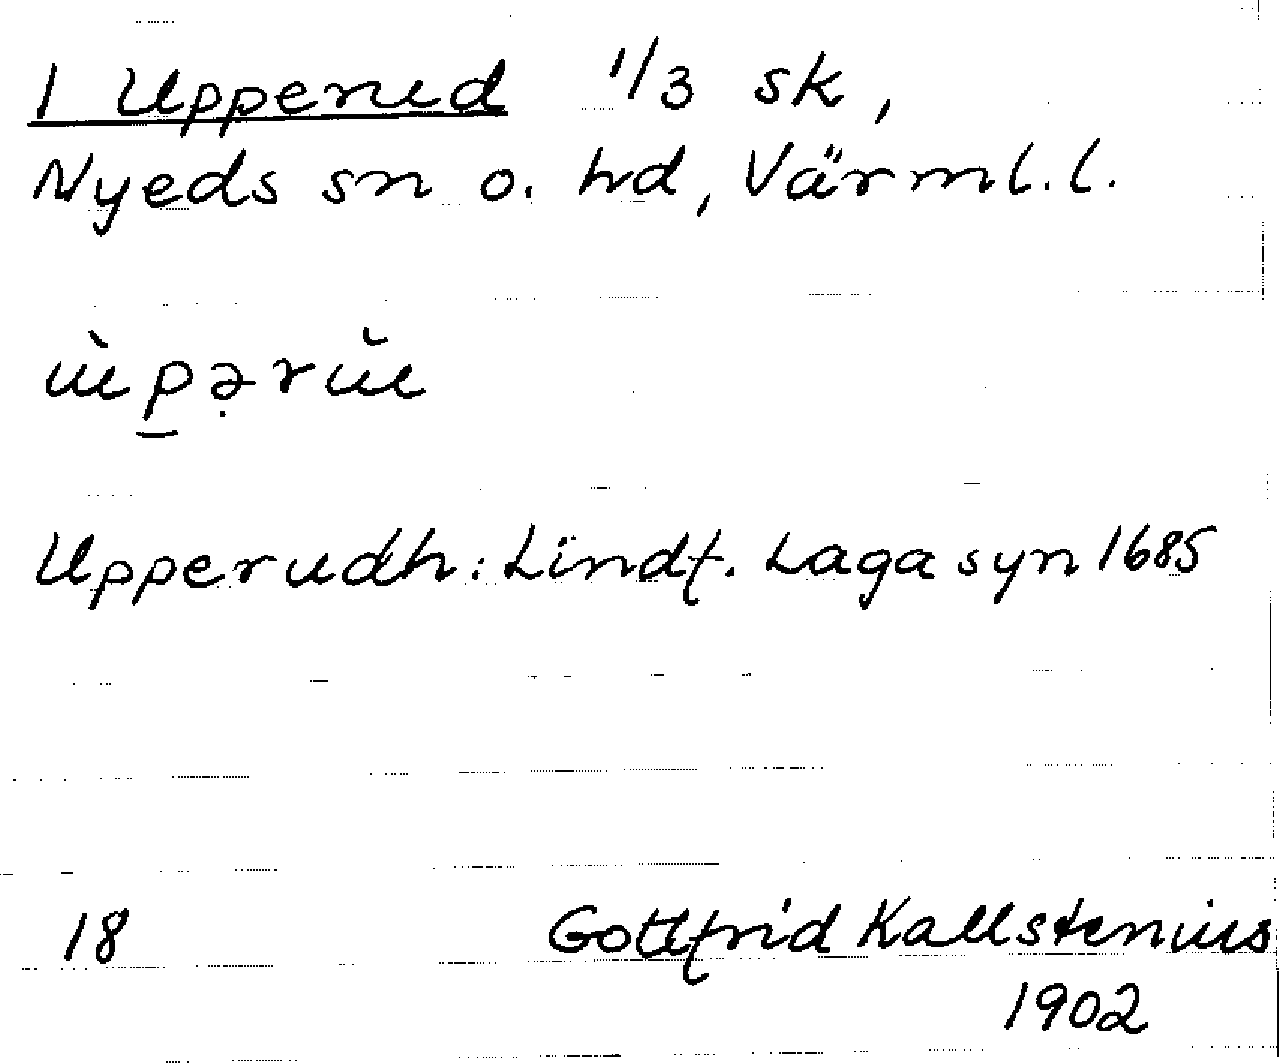 1 Upperud 1/3 sk,
Nyeds sn o. hd, Värml. l.
Upperudh: Lindf. Lagasyn 1685
18 Gottfrid Kallstenius
1902